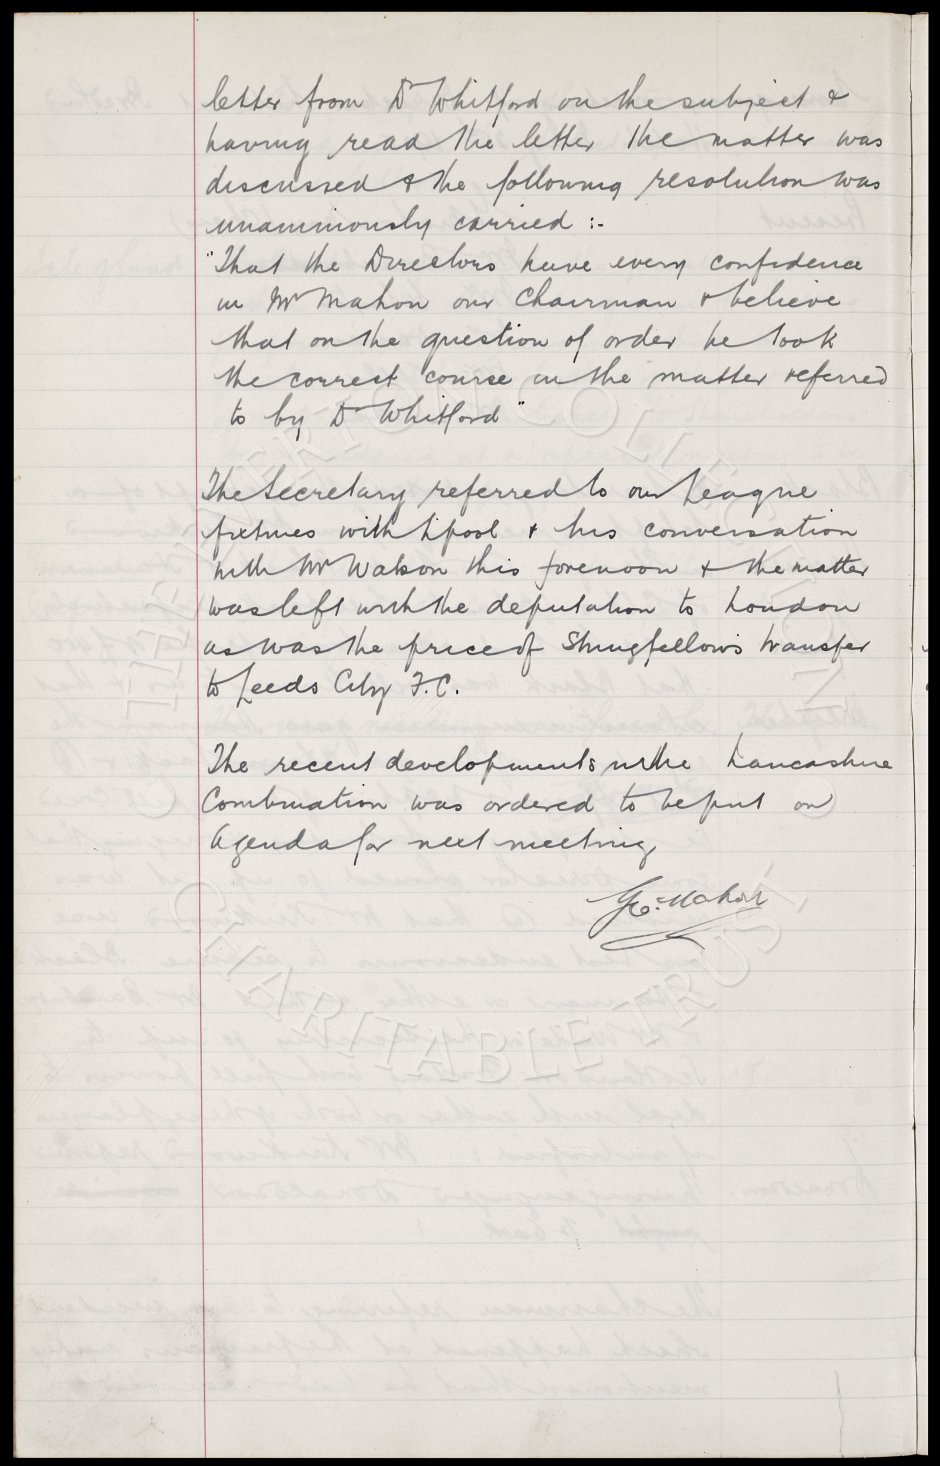 letter from Dr Whitford on the subject &
having read the letter the matter was
discussed & the following resolution was
unanimously carried :-
"That the Directors have every confidence
in Mr Mahon our Chairman & believe
that on the question of order he took
the correct course in the matter referred
to by Dr Whitford"
The Secretary referred to our League
fixtures with Lpool & his conversation
with Mr Watson this forenoon & the matter
was left with the deputation to London
as was the price of Stringfellow's transfer
to Leeds City F.C.
The recent developments in the Lancashire
Combination was ordered to be put on
Agenda for next meeting
Geo. Mahon
THE EVERTON COLLECTION
CHARITABLE TRUST